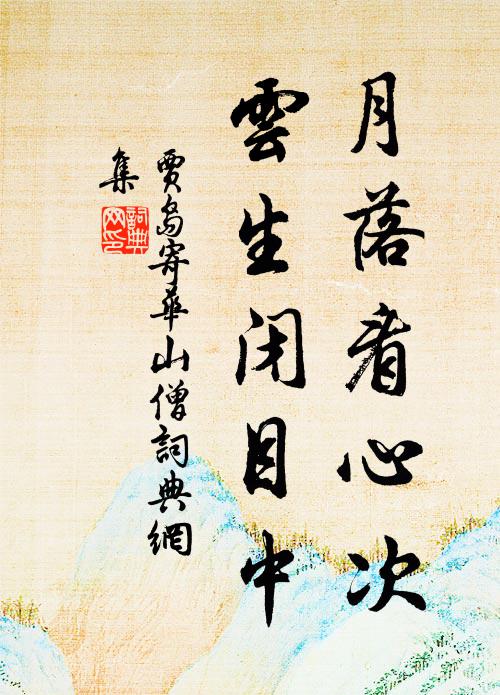 月落看心次
雲生閉目中
賈島寄華山僧詞典網
集
詞典
网印